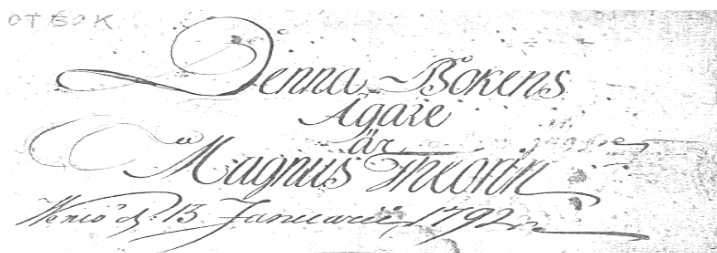 OTBOK
Denna Bokens
Ägare
är
Magnus Theorin
Wexiö d. 13 Januarii 1792